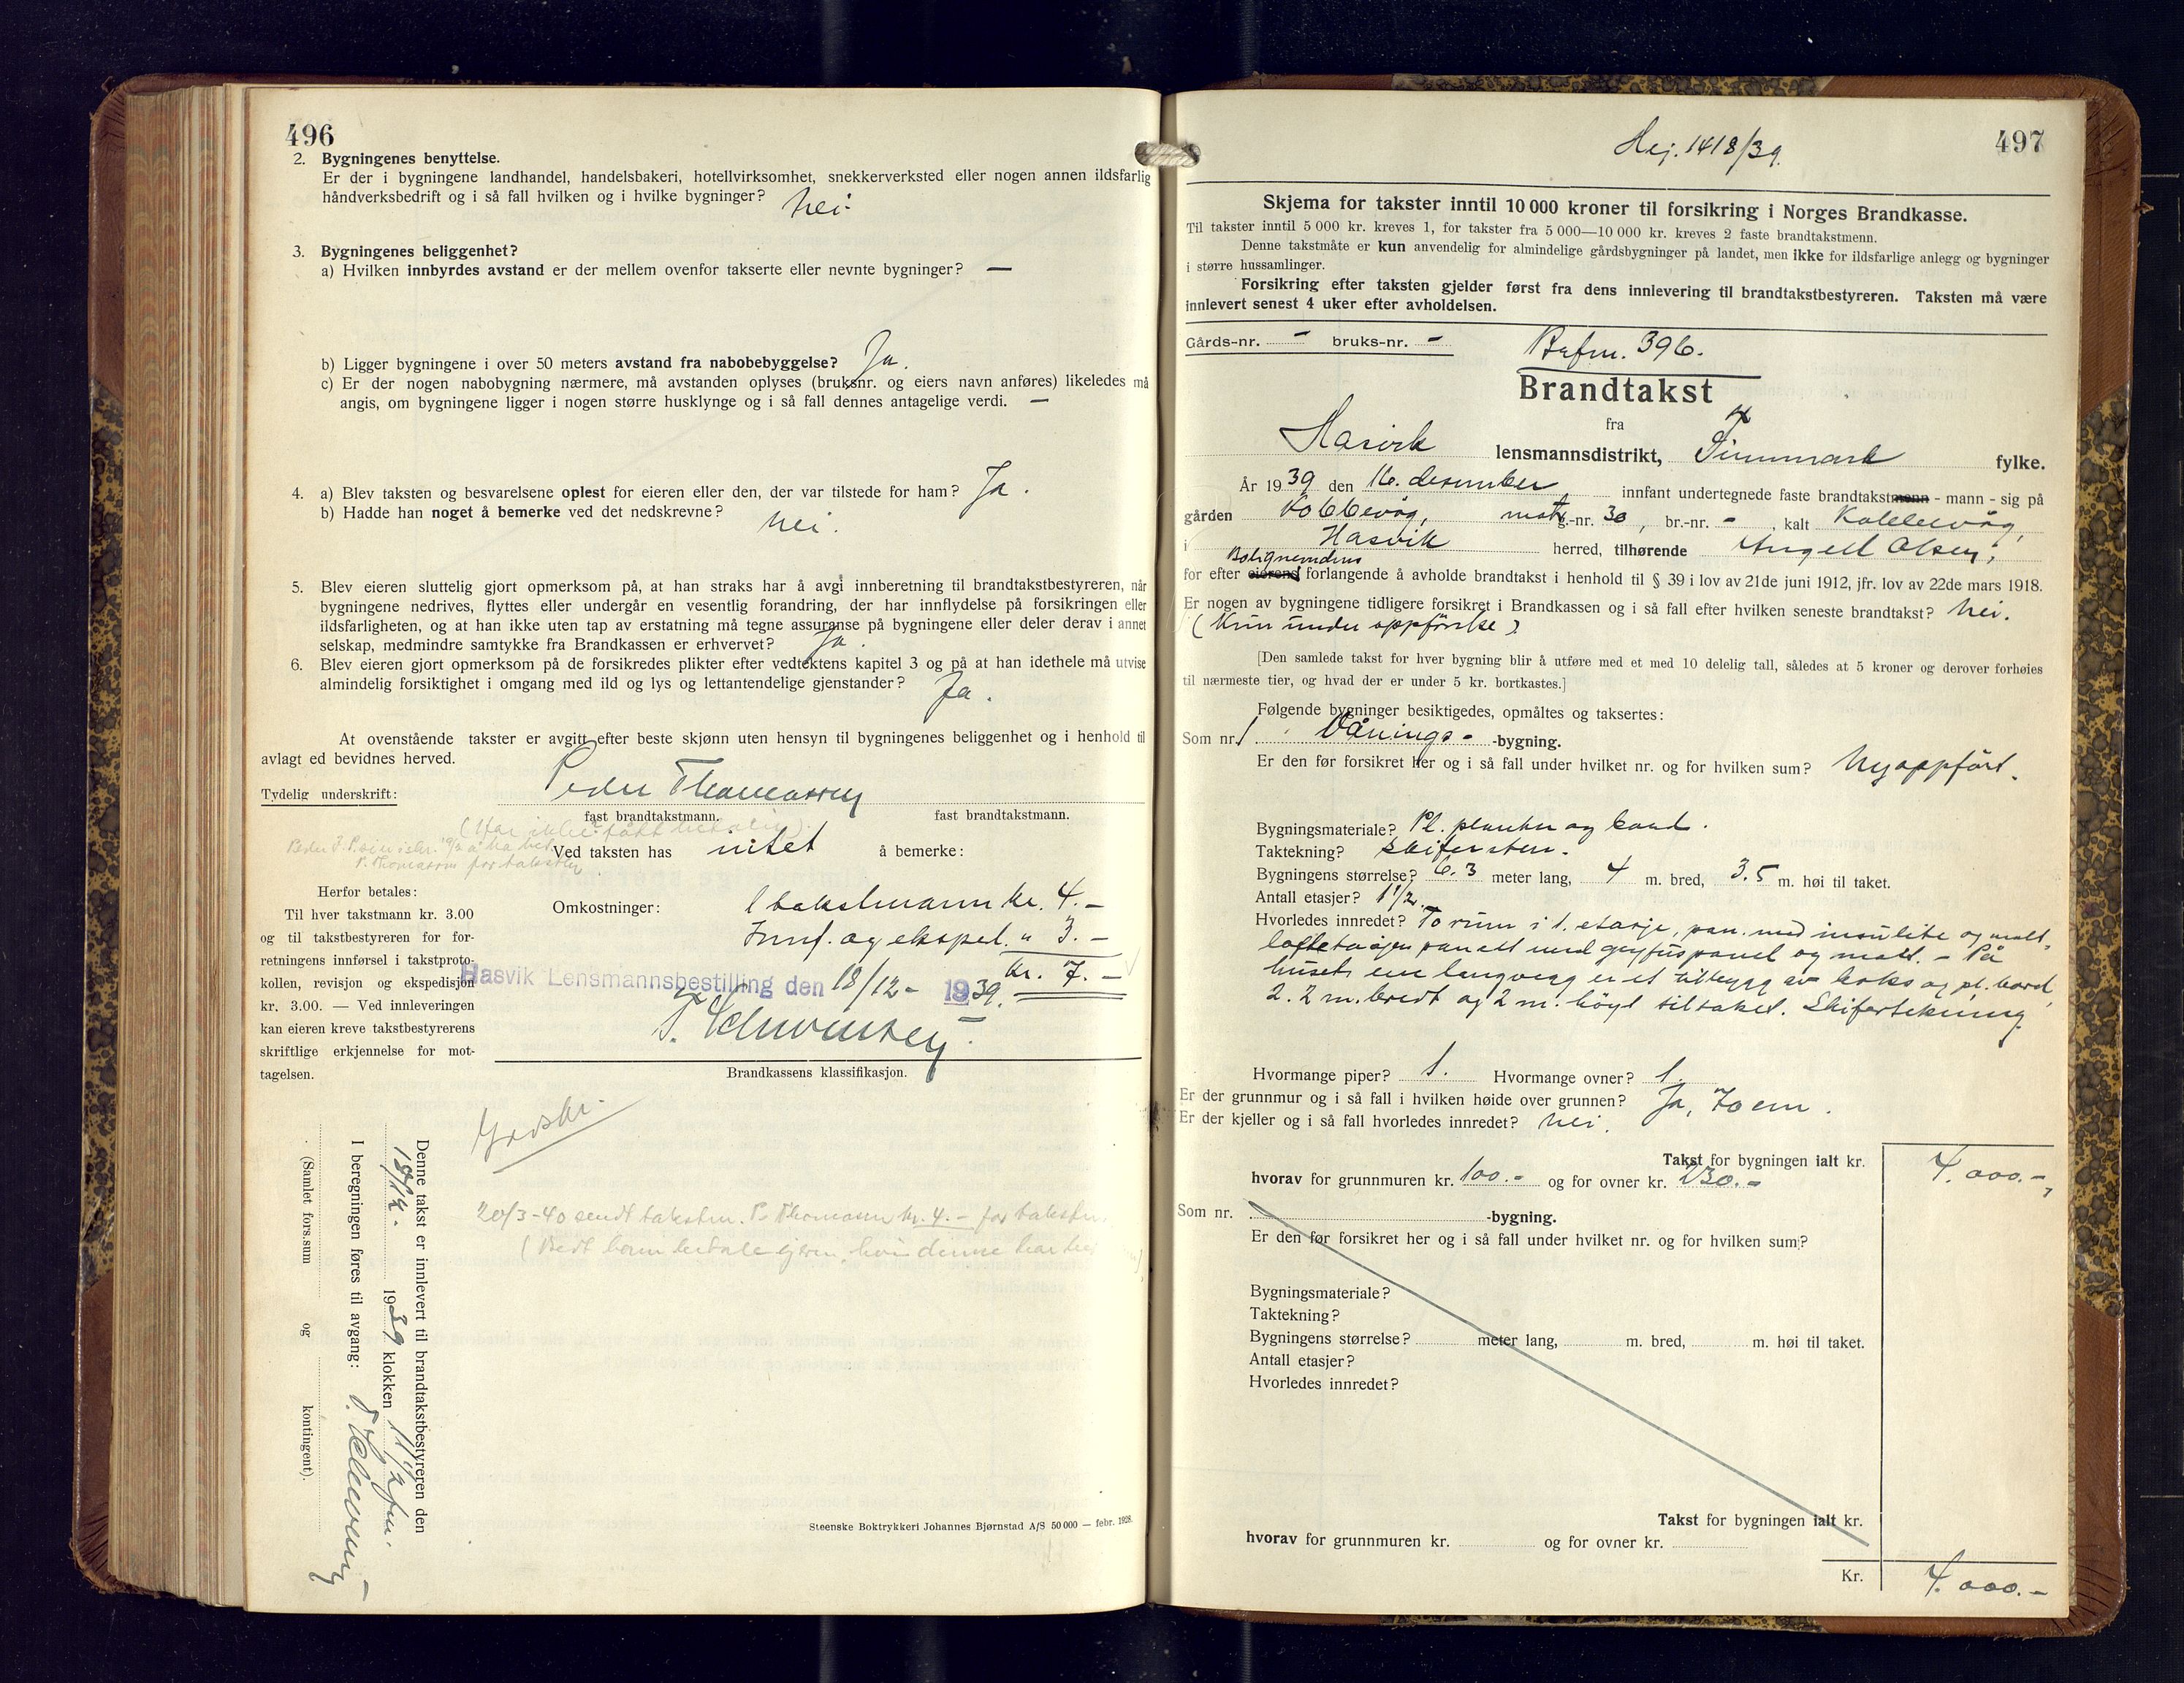 496
2. Bygningenes benyttelse.
Er der i bygningene landhandel, handelsbakeri, hotellvirksomhet, snekkerverksted eller nogen annen ildsfarlig
håndverksbedrift og i så fall hvilken og i hvilke bygninger? Nei.
3. Bygningenes beliggenhet?
a) Hvilken innbyrdes avstand er der mellem ovenfor takserte eller nevnte bygninger? —
b) Ligger bygningene i over 50 meters avstand fra nabobebyggelse? Ja.
c) Er der nogen nabobygning nærmere, må avstanden oplyses (bruksnr. og eiers navn anføres) likeledes må
angis, om bygningene ligger i nogen større husklynge og i så fall dennes antagelige verdi. —
4. a) Blev taksten og besvarelsene oplest for eieren eller den, der var tilstede for ham? Ja.
b) Hadde han noget å bemerke ved det nedskrevne? Nei.
5. Blev eieren sluttelig gjort opmerksom på, at han straks har å avgi innberetning til brandtakstbestyreren, når
bygningene nedrives, flyttes eller undergår en vesentlig forandring, der har innflydelse på forsikringen eller
ildsfarligheten, og at han ikke uten tap av erstatning må tegne assuranse på bygningene eller deler derav i annet
selskap, medmindre samtykke fra Brandkassen er erhvervet? Ja.
6. Blev eieren gjort opmerksom på de forsikredes plikter efter vedtektens kapitel 3 og på at han idethele må utvise
almindelig forsiktighet i omgang med ild og lys og lettantendelige gjenstander? Ja.
At ovenstående takster er avgitt efter beste skjønn uten hensyn til bygningenes beliggenhet og i henhold til
avlagt ed bevidnes herved.
Tydelig underskrift: Peder Thomassen
fast brandtakstmann. fast brandtakstmann.
(Har ikke fått betaling).
P. Thomassen for taksten
Ved taksten has intet å bemerke:
Herfor betales:
Til hver takstmann kr. 3.00
og til takstbestyreren for for-
retningens innførsel i takstproto-
kollen, revisjon og ekspedisjon
kr. 3.00. — Ved innleveringen
kan eieren kreve takstbestyrerens
skriftlige erkjennelse for mot-
tagelsen.
Omkostninger: 1 takstmann kr. 4.-
Innf. og eksped. " 3.-
kr. 7.-
Hasvik Lensmannsbestilling den 18/12- 1939.
Brandkassens klassifikasjon.
Godskr.
20/3-40 sendt taksten. P. Thomassen kr. 4.- for taksten
Denne takst er innlevert til brandtakstbestyreren den
18/12. 1939 klokken 11 1/2 fm.
I beregningen føres til avgang:
(Samlet fors.sum og kontingent).
Steenske Boktrykkeri Johannes Bjørnstad A/S 50 000 — febr. 1928.
497
Hej. 1418/39.
Skjema for takster inntil 10 000 kroner til forsikring i Norges Brandkasse.
Til takster inntil 5 000 kr. kreves 1, for takster fra 5 000—10 000 kr. kreves 2 faste brandtakstmenn.
Denne takstmåte er kun anvendelig for almindelige gårdsbygninger på landet, men ikke for ildsfarlige anlegg og bygninger
i større hussamlinger.
Forsikring efter taksten gjelder først fra dens innlevering til brandtakstbestyreren. Taksten må være
innlevert senest 4 uker efter avholdelsen.
Gårds-nr. - bruks-nr. -
Brfnr. 396.
Brandtakst
fra
Hasvik lensmannsdistrikt, Finnmark fylke.
År 1939 den 16. desember innfant undertegnede faste brandtakstmenn - mann - sig på
gården Kobbevåg, matr. g.-nr. 30, br.-nr. -, kalt Kobbevåg,
i Hasvik herred, tilhørende Angell Olsen,
Bolignemdens
for efter eierens forlangende å avholde brandtakst i henhold til § 39 i lov av 21de juni 1912, jfr. lov av 22de mars 1918.
Er nogen av bygningene tidligere forsikret i Brandkassen og i så fall efter hvilken seneste brandtakst? Nei.
(Kun under oppförelse).
[Den samlede takst for hver bygning blir å utføre med et med 10 delelig tall, således at 5 kroner og derover forhøies
til nærmeste tier, og hvad der er under 5 kr. bortkastes.]
Følgende bygninger besiktigedes, opmåltes og taksertes:
Som nr. 1 Vånings- -bygning.
Er den før forsikret her og i så fall under hvilket nr. og for hvilken sum? Nyoppfört.
Bygningsmateriale? Pl. planker og bord.
Taktekning? Skifersten.
Bygningens størrelse? 6.3 meter lang, 4 m. bred, 3.5 m. høi til taket.
Antall etasjer? 1 1/2.
Hvorledes innredet? To rum i 1. etasje, pan. med insulite og malt,
loftetasjen panelt med gryfuspanel og malt. - På
husets ene langvegg er et tilbygg av boks og pl. bord,
2.2 m. bredt og 2 m. høyt til taket. Skifertekning.
Hvormange piper? 1. Hvormange ovner? 1.
Er der grunnmur og i så fall i hvilken høide over grunnen? Ja, 70 cm.
Er der kjeller og i så fall hvorledes innredet? Nei.
Takst for bygningen ialt kr. 4.000.-
hvorav for grunnmuren kr. 100.- og for ovner kr. 130.-
Som nr. -bygning.
Er den før forsikret her og i så fall under hvilket nr. og for hvilken sum?
Bygningsmateriale?
Taktekning?
Bygningens størrelse? meter lang, m. bred, m. høi til taket.
Antall etasjer?
Hvorledes innredet?
Takst for bygningen ialt kr.
hvorav for grunnmuren kr. og for ovner kr.
Kr. 4.000.-